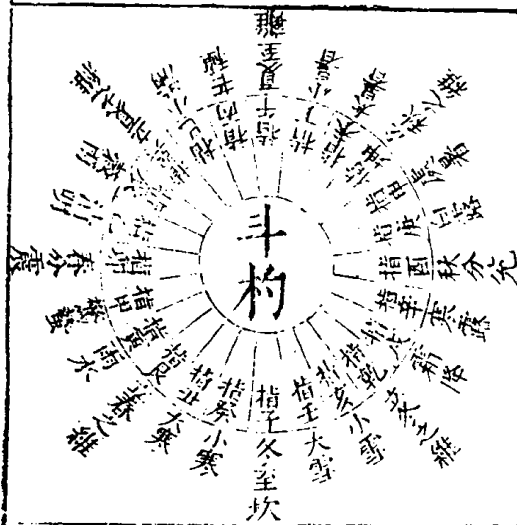 斗杓
指子冬至坎
指癸小寒
指丑大寒
指艮春之維
指寅雨水
指甲驚蟄
指卯春分震
指乙清明
指辰穀雨
夏之維
指巳小滿
指丙芒種
指午夏至離
指丁小暑
指未大暑
指坤秋之維
指申處暑
指庚白露
指酉秋分兌
指辛寒露
指戌霜降
指乾冬之維
指亥小雪
指壬大雪